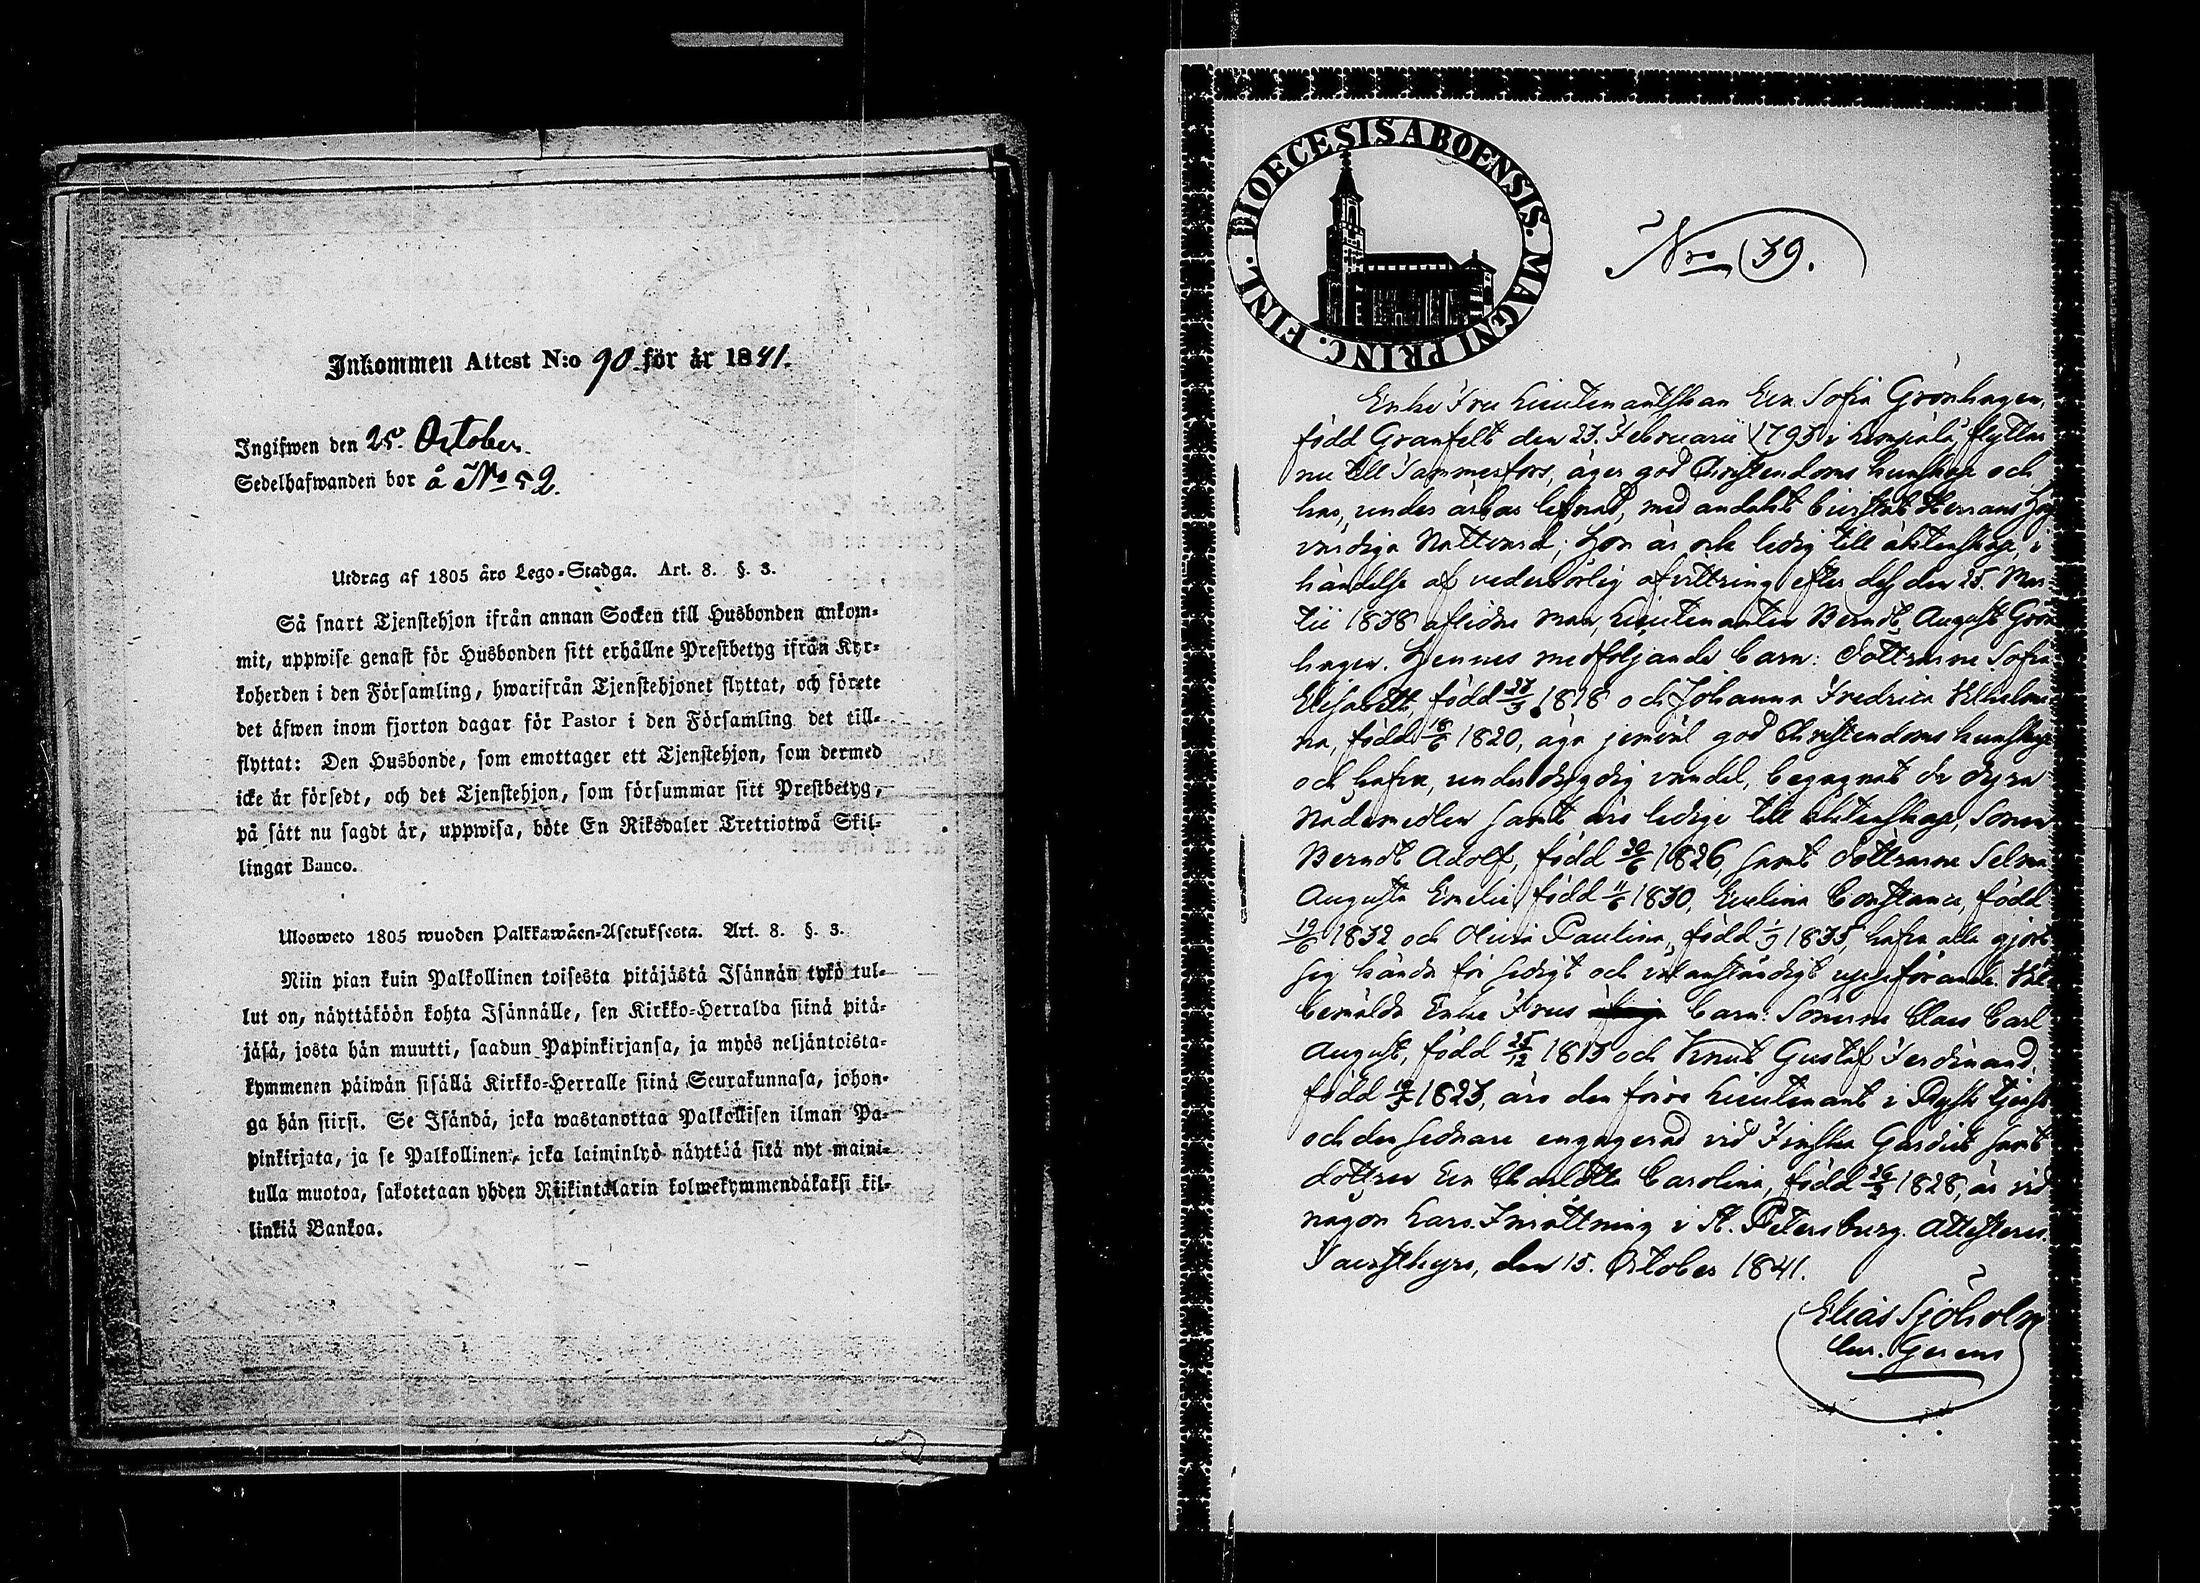 Inkommen Attest N:o 90 för år 1841.
Ingifwen den 25. October.
Sedelhafwanden bor å No 52.
Utdrag af 1805 års Lego-Stadga. Art. 8. §. 3.
Så snart Tjenstehjon ifrån annan Socken till Husbonden ankom-
mit, uppwise genast för Husbonden sitt erhållne Prestbetyg ifrån Kyr-
koherden i den Församling, hwarifrån Tjenstehjonet flyttat, och förete
det äfwen inom fjorton dagar för Pastor i den Församling det till-
flyttat: Den Husbonde, som emottager ett Tjenstehjon, som dermed
icke är försedt, och det Tjenstehjon, som försummar sitt Prestbetyg,
på sätt nu sagdt är, uppwisa, böte En Riksdaler Trettiotwå Skil-
lingar Banco.
Ulosweto 1805 wuoden Palkkawäen-Asetuksesta. Art. 8. §. 3.
Niin pian kuin Palkollinen toisesta pitäjästä Isännän tykö tul-
lut on, näyttäköön kohta Isännälle, sen Kirkko-Herralda siinä pitä-
jäsä, josta hän muutti, saadun Papinkirjansa, ja myös neljäntoista-
kymmenen päiwän sisällä Kirkko-Herralle siinä Seurakunnasa, johon-
ga hän siirsi. Se Isändä, joka wastanottaa Palkollisen ilman Pa-
pinkirjata, ja se Palkollinen, joka laiminlyö näyttää sitä nyt maini-
tulla muotoa, sakotetaan yhden Riikintalarin kolmekymmendäkaksi kil-
linkiä Bankoa.
DIOECESIS ABOENSIS. MAGNI PRINC. FINL.
Nro 39.
Enke Fru Lieutenantskan Eva Sofia Grönhagen,
född Granfelt den 23. Februarii 1793 i Lempälä, flyttar
nu till Tammerfors, äger god Christendoms kunskap och
har, under ärbar lefnad, med andakt bevistat Herrans Hög-
värdiga Nattvard; Hon är ock ledig till äktenskap, i
händelse af vederbörlig afvittring efter dess den 25. Mar-
tii 1838 aflidne man, Lieutenanten Berndt August Grön-
hagen. Hennes medföljande barn: Döttrarne Sofia
Elisabeth, född 27/3 1818 och Johanna Fredrica Vilhelmi-
na, född 18/6 1820, äga jemväl god Christendoms kunskap
och hafva, under dygdig vandel, begagnat de dyra
Nådemedlen samt äro lediga till äktenskap, Sonen
Berndt Adolf, född 30/6 1826, samt Döttrarne Selma
Augusta Emelie, född 11/6 1830, Evelina Constance, född
19/6 1832 och Olivia Paulina, född 1/9 1835, hafva alla gjort
sig kända för sedigt och välanständigt uppförande. Väl-
bemälde Enke Frus barn: Sönerna Claes Carl
August, född 25/12 1815 och Knut Gustaf Ferdinand,
född 19/3 1823, äro den förre Lieutenant i Rysk tjenst
och den sednare engagerad vid Finska Gardiet samt
dottren Eva Charlotta Carolina, född 26/3 1828, är vid
någon Läro-Inrättning i St. Petersburg. Attesteras.
Tavastkyro, den 15. October 1841.
Elias Sjöholm
Cur. Gerens